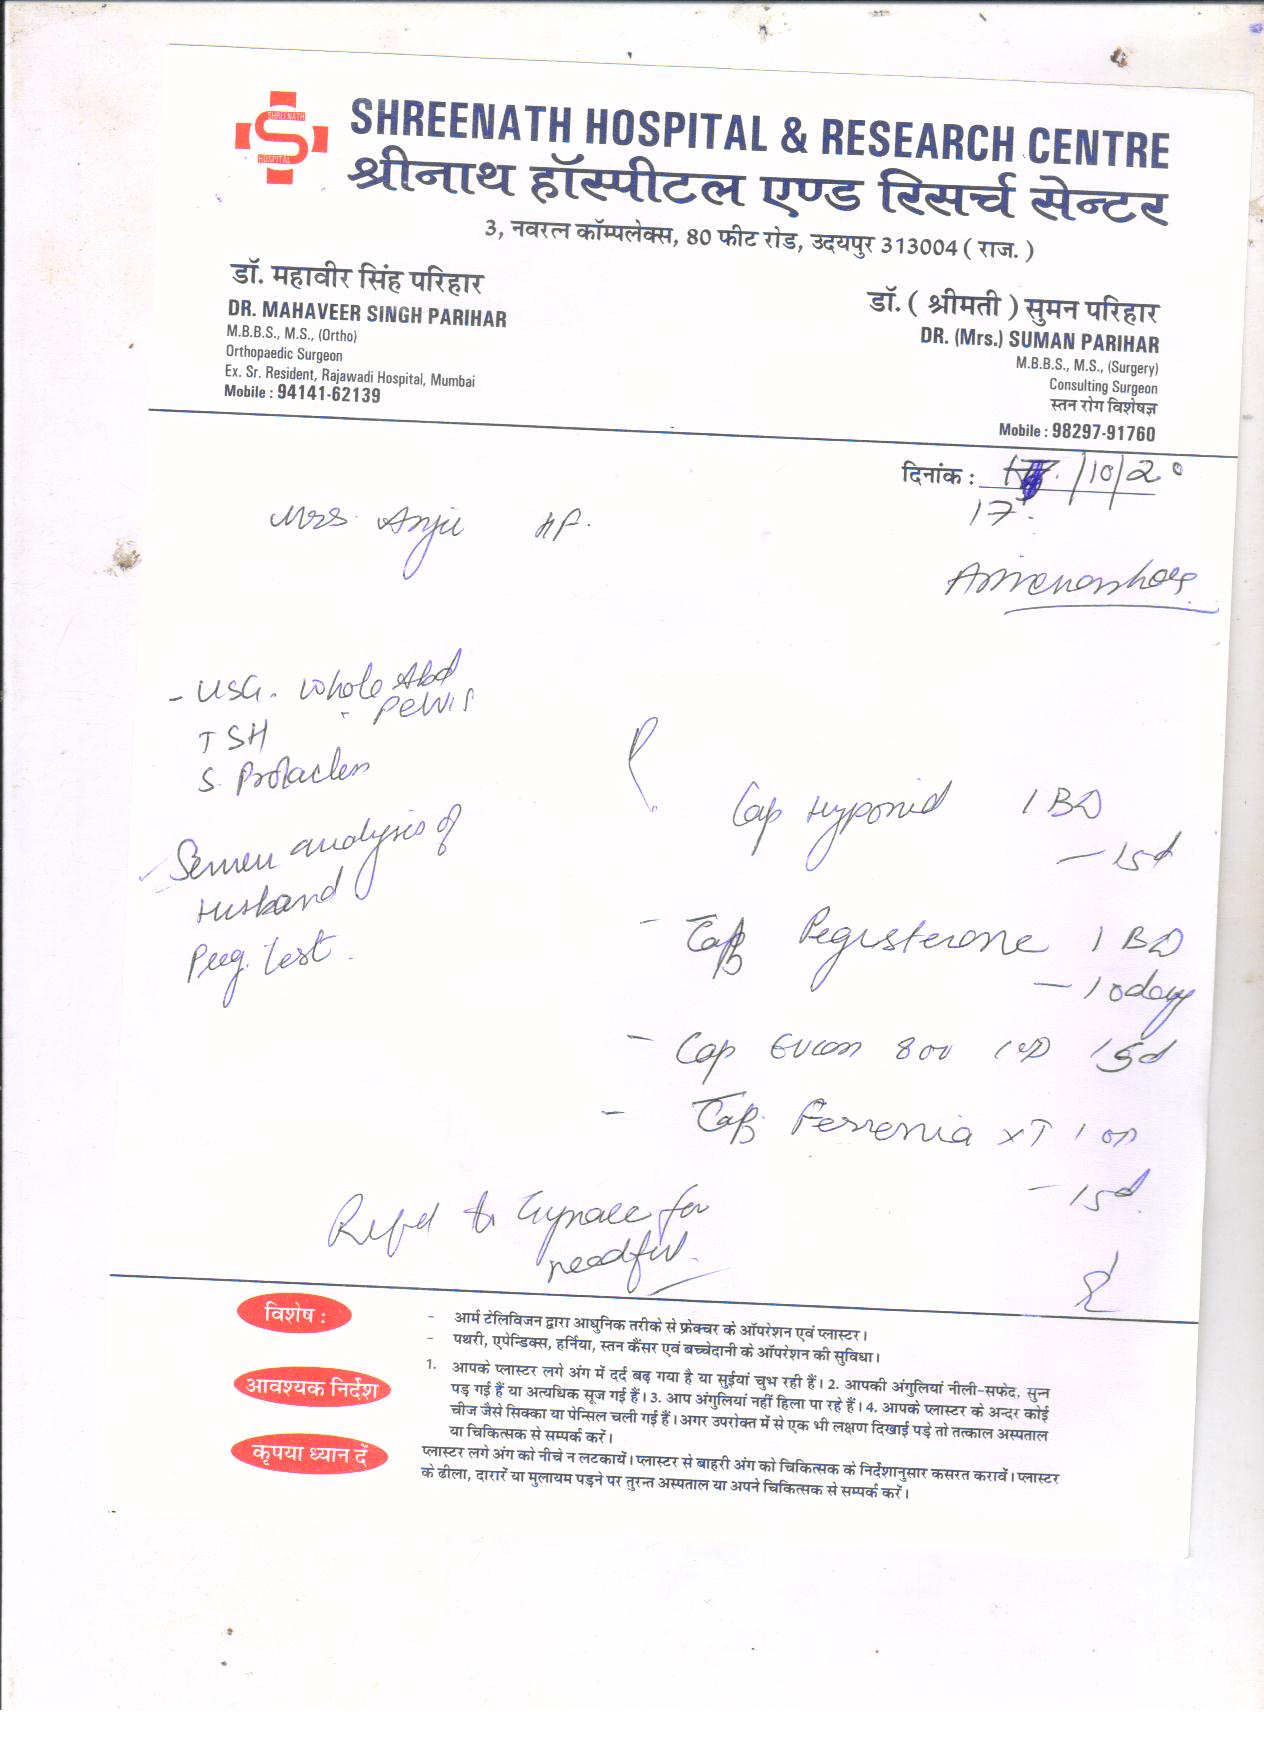 SHREENATH HOSPITAL
SHREENATH HOSPITAL & RESEARCH CENTRE
श्रीनाथ हॉस्पीटल एण्ड रिसर्च सेन्टर
3, नवरत्न कॉम्पलेक्स, 80 फीट रोड, उदयपुर 313004 ( राज. )
डॉ. महावीर सिंह परिहार
DR. MAHAVEER SINGH PARIHAR
M.B.B.S., M.S., (Ortho)
Orthopaedic Surgeon
Ex. Sr. Resident, Rajawadi Hospital, Mumbai
Mobile : 94141-62139
डॉ. ( श्रीमती ) सुमन परिहार
DR. (Mrs.) SUMAN PARIHAR
M.B.B.S., M.S., (Surgery)
Consulting Surgeon
स्तन रोग विशेषज्ञ
Mobile : 98297-91760
दिनांक : /10/20
17
Mrs. Anju
- USG. Whole Abd
- Pelvis
TSH
S. Prolactin
Semen analysis of
Husband
Preg. Test.
Cap Hyponid 1 BD
- 15d
- Tab Regesterone 1 BD
- 10days
- Cap Evion 800 1 OD 15d
- Tab. Ferronia XT 1 OD
- 15d
Refd to Gynaec for
needful.
विशेष :
- आर्म टेलिविजन द्वारा आधुनिक तरीके से फ्रेक्चर के ऑपरेशन एवं प्लास्टर।
- पथरी, एपेन्डिक्स, हर्निया, स्तन कैंसर एवं बच्चेदानी के ऑपरेशन की सुविधा।
आवश्यक निर्देश
1. आपके प्लास्टर लगे अंग में दर्द बढ़ गया है या सुईयां चुभ रही हैं। 2. आपकी अंगुलियां नीली-सफेद, सुन्न
पड़ गई हैं या अत्यधिक सूज गई हैं। 3. आप अंगुलियां नहीं हिला पा रहे हैं। 4. आपके प्लास्टर के अन्दर कोई
चीज जैसे सिक्का या पेन्सिल चली गई हैं। अगर उपरोक्त में से एक भी लक्षण दिखाई पड़े तो तत्काल अस्पताल
या चिकित्सक से सम्पर्क करें।
कृपया ध्यान दें
प्लास्टर लगे अंग को नीचे न लटकायें। प्लास्टर से बाहरी अंग को चिकित्सक के निर्देशानुसार कसरत करावें। प्लास्टर
के ढीला, दारारें या मुलायम पड़ने पर तुरन्त अस्पताल या अपने चिकित्सक से सम्पर्क करें।